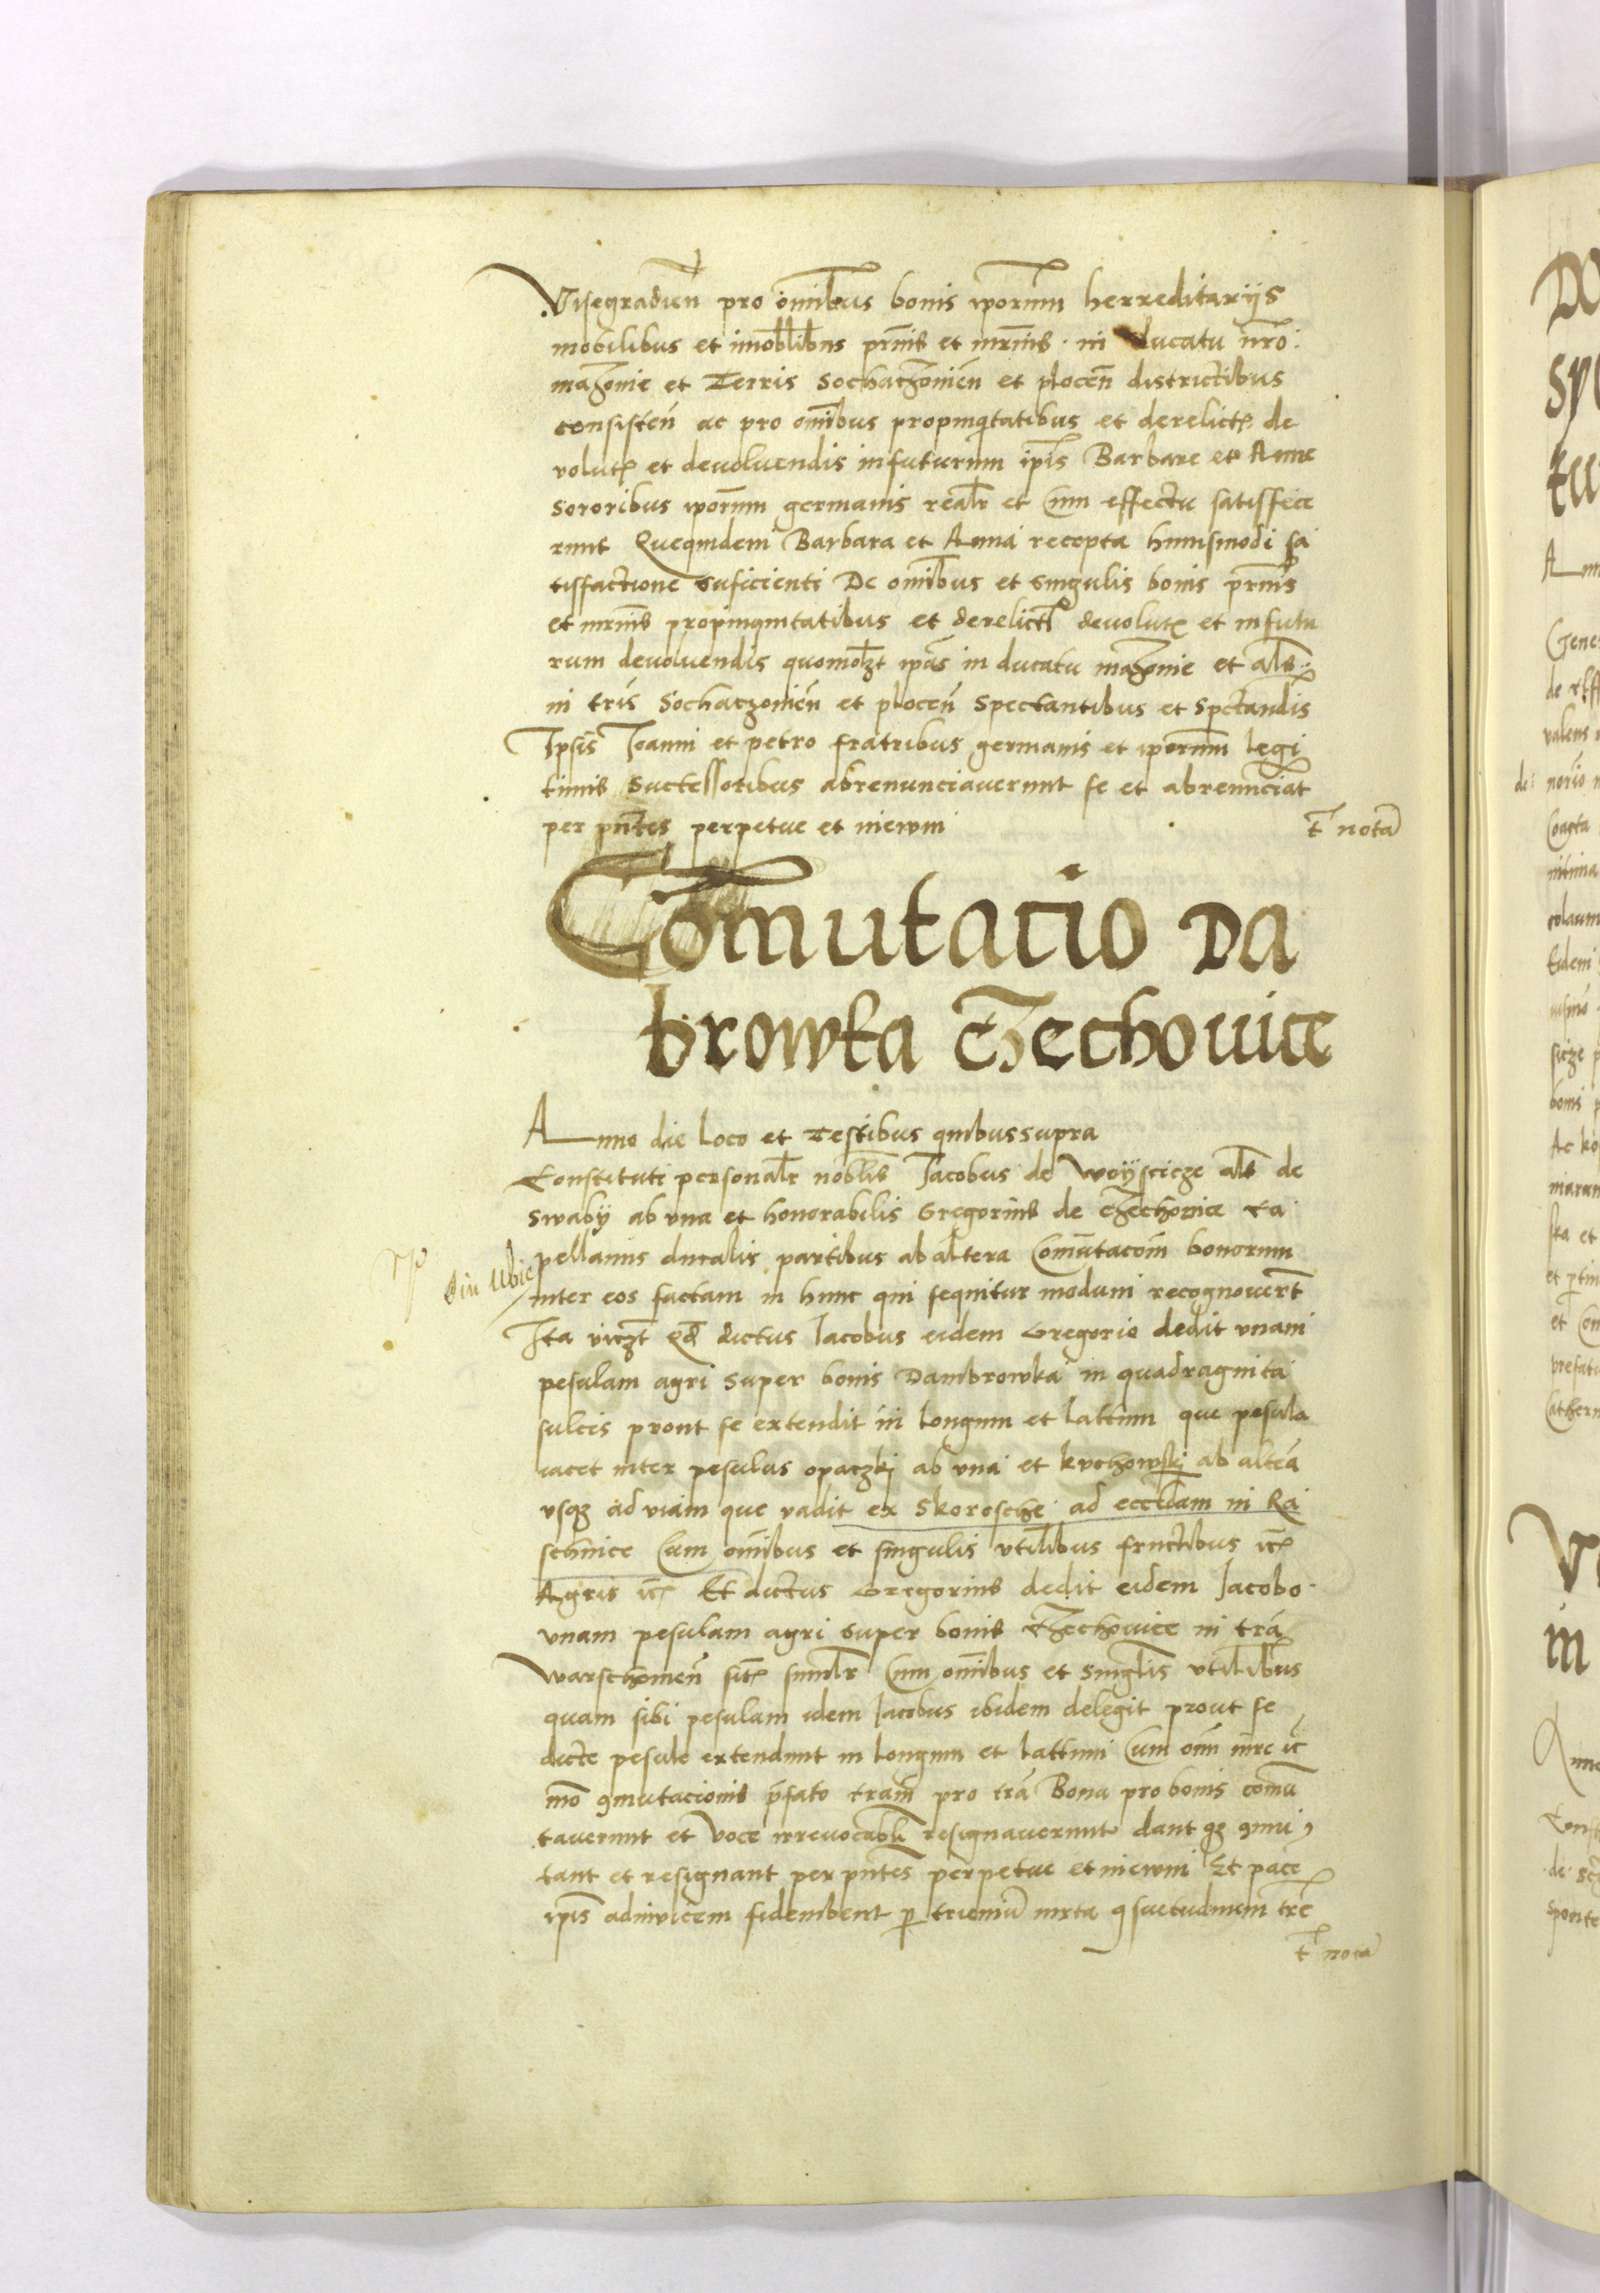 Visegradien̄ pro om̄ibus bonis ip̄orum herreditarijs
mobilibus et imob̄libus pr̄nis et mr̄nis in ducatu nr̄o
mazouie et Terris Sochaczouien̄ et plocen̄ districtibus
consisten̄ ac pro om̄ibus propinq̄tatibus et derelict̄ de
volut̄ et deuoluendis infuturum ip̄is Barbare et Anne
sororibus ip̄orum germanis real̄r et Cum effectu satisfece
runt Quequidem Barbara et Anna recepta huiusmodi sa
tisfactione suficienti De om̄ibus et singulis bonis pr̄nis
et mr̄nis propinquitatibus et derelict̄ deuolut̄ et infutu
rum deuoluendis quomol̄zt ip̄as in ducatu mazouie et al̄s
in tr̄is Sochaczouien̄ et plocen̄ Spectantibus et Spctandis
Ipsis Joanni et petro fratribus germanis et ip̄orum legi
timis Successoribus abrenunciauerunt se et abrenunciāt
per pn̄tes perpetue et in ewm
t̄ nota
Com̄utacio Da
browka Czechouice
Anno die loco et Testibus quibus supra
Constituti personal̄r nob̄lis Jacobus de Woyscicze al̄s de
Swaby ab vna et honorabilis Gregorius de Czechouice Ca
pellanus ducalis partibus ab altera Com̄utacōm bonorum
inter eos factam in hunc qui sequitur modum recognouer̄t
Ita vicz̄t Qd̄ dictus Jacobus eidem Gregorio dedit vnam
pesulam agri super bonis Dambrowka in quadraginta
sulcis prout se extendit in longum et lattum que pesula
iacet inter pesulas opaczkj ab vna et kuchowskj ab alter̄a
vsqz ad viam que vadit ex Skorosche ad eccl̄iam in Ra
schince Cum om̄ibus et singulis vtil̄ibus fructibus ic̄
Agris ic̄ Et dictus Gregorius dedit eidem Jacobo
vnam pesulam agri super bonis Czechouice in tr̄a
warschouien̄ sit̄ simil̄r Cum om̄ibus et singl̄is vtil̄ibus
quam sibi pesulam idem Jacobus ibidem delegit prout se
dicte pesule extendunt in longum et lattum Cum om̄i iure ic̄
mō 9mutacionis p̄fato tr̄am pro tr̄a Bona pro bonis com̄u
tauerunt et Voce irreuocab̄li resignauerunt dantqz 9mu
tant et resignant per pn̄tes perpetue et in ewm Et pace
ip̄is adinuicem fidembent p̱ trieniū iuxta 9suetudinem tr̄e
t̄ nota